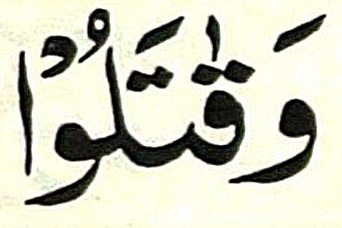 وَقٰتَلُوْا